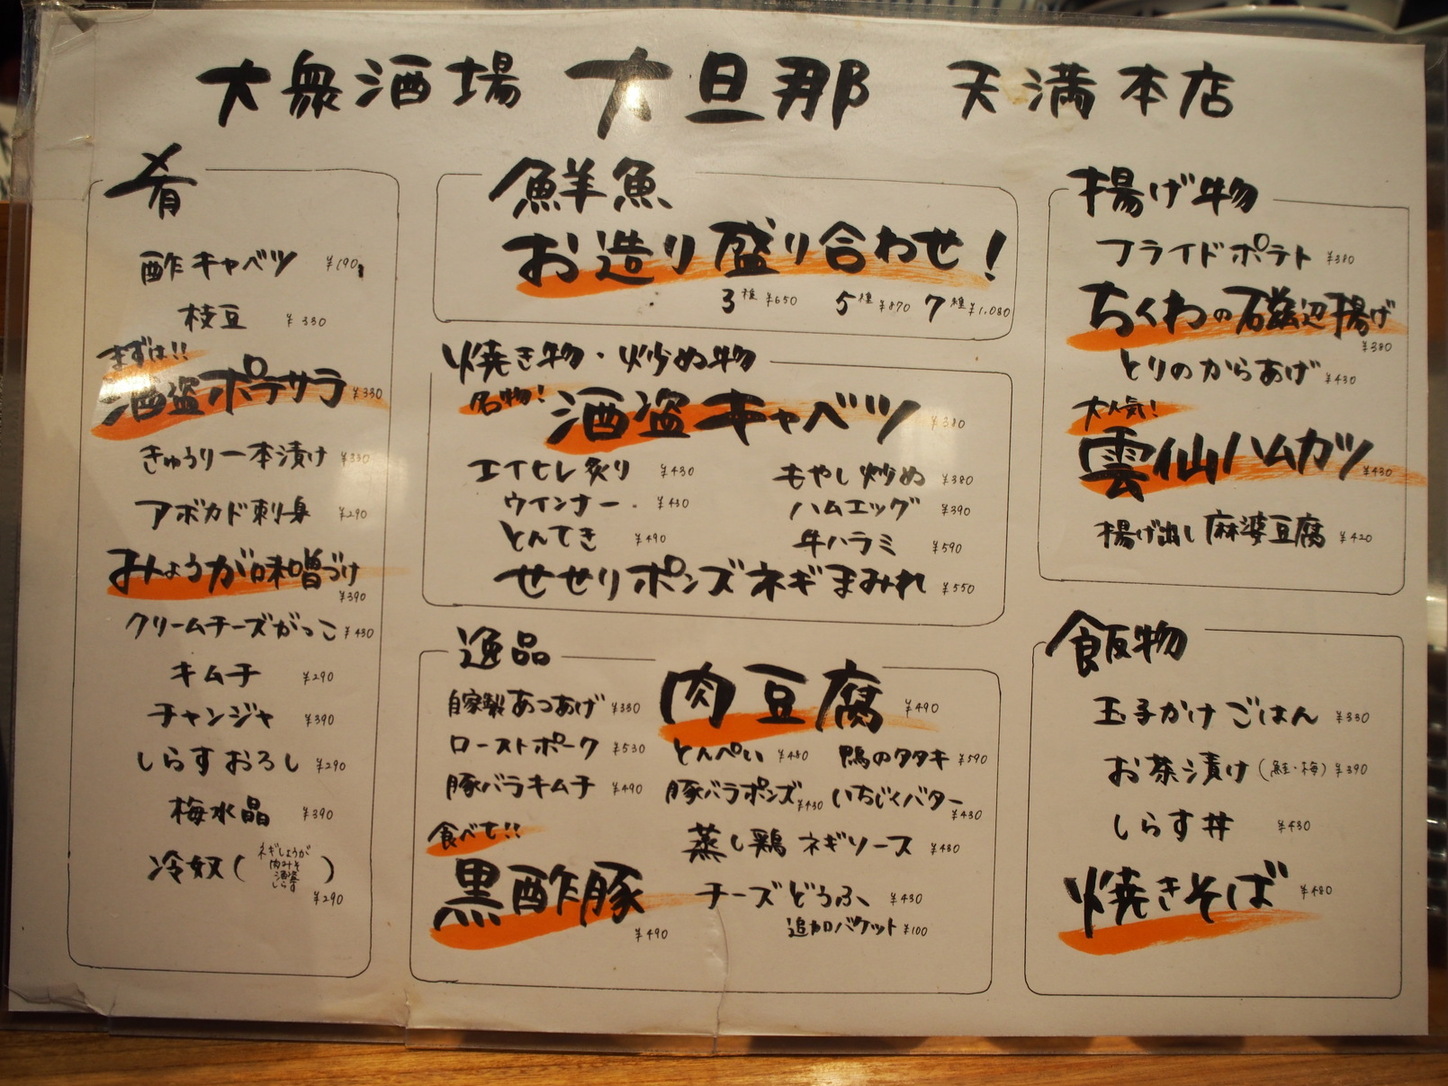 大衆酒場 大旦那 天満本店
肴
酢キャベツ ¥190
枝豆 ¥330
まずは!!
酒盗ポテサラ ¥330
きゅうり一本漬け ¥330
アボカド刺身 ¥290
みょうが味噌づけ ¥390
クリームチーズがっこ ¥430
キムチ ¥290
チャンジャ ¥390
しらすおろし ¥290
梅水晶 ¥390
冷奴(ネギしょうが 肉みそ 酒盗 しらす) ¥290
鮮魚
お造り盛り合わせ!
3種 ¥650 5種 ¥870 7種 ¥1.080
焼き物・炒め物
名物!
酒盗キャベツ ¥380
エイヒレ炙り ¥430 もやし炒め ¥380
ウインナー ¥430 ハムエッグ ¥390
とんてき ¥490 牛ハラミ ¥590
せせりポンズネギまみれ ¥550
逸品
肉豆腐 ¥490
自家製あつあげ ¥330
ローストポーク ¥530 とんぺい ¥480 鴨のタタキ ¥590
豚バラキムチ ¥490 豚バラポンズ ¥430 いちじくバター ¥430
食べて!!
黒酢豚 ¥490
蒸し鶏ネギソース ¥430
チーズどうふ ¥430
追加バケット ¥100
揚げ物
フライドポテト ¥380
ちくわの磯辺揚げ ¥380
とりのからあげ ¥430
大人気!
雲仙ハムカツ ¥430
揚げ出し麻婆豆腐 ¥420
飯物
玉子かけごはん ¥330
お茶漬け(鮭・梅) ¥390
しらす丼 ¥430
焼きそば ¥480